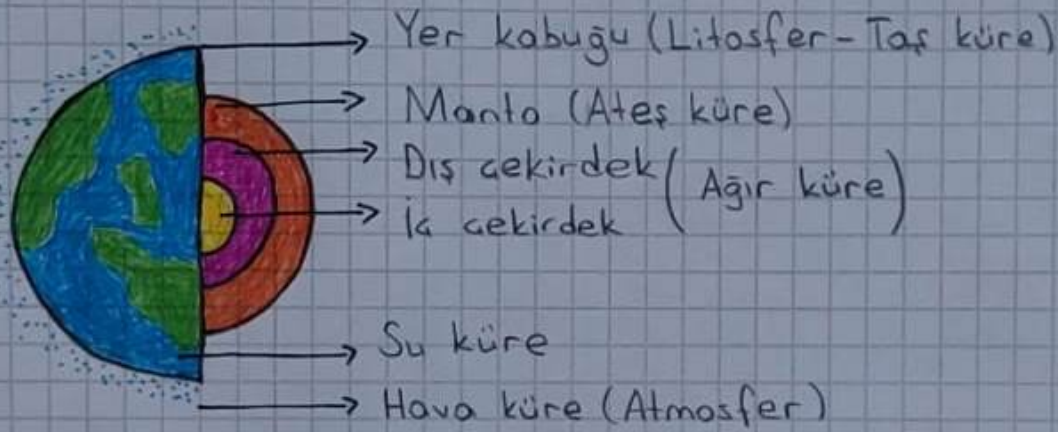 Yer kabuğu (Litosfer-Taş küre)
Manto (Ateş küre)
Dış çekirdek (Ağır küre)
İç çekirdek
Su küre
Hava küre (Atmosfer)